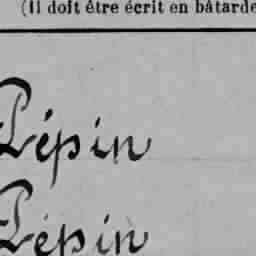 (Il doit être écrit en bâtarde
Pépin
Pépin